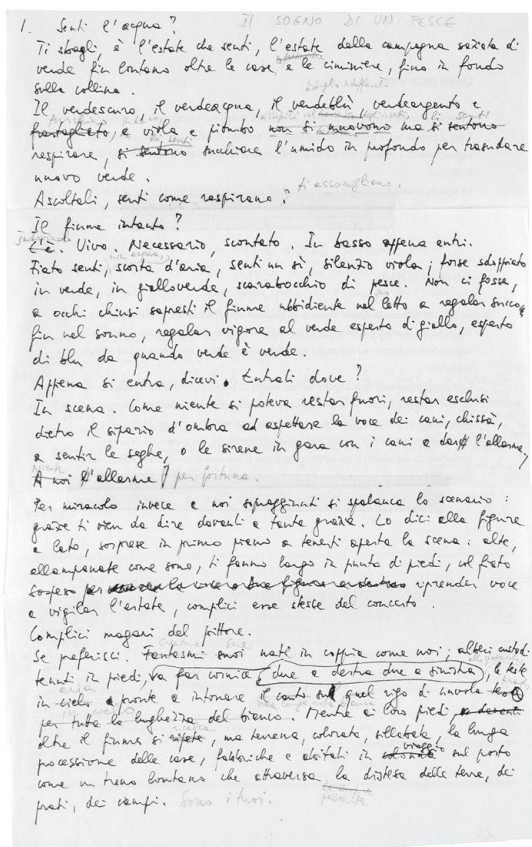 IL SOGNO DI UN PESCE
1. Senti l'acqua?
Ti sbagli, è l'estate che senti, l'estate della campagna saziata di
verde fin lontano oltre le case e le ciminiere, fino in fondo
sulla collina.
Il verdescuro, il verdeacqua, il verdeblù, verdeargento e
frastagliato, e viola e piombo non si muovono ma si sentono
respirare, si sentono succhiare l'umido in profondo per trasudare
nuovo verde.
Ascoltali, senti come respirano? ti assomigliano.
Il fiume intanto?
C'è. Vivo. Necessario, scontato. In basso appena entri.
Fiato senti, scorta d'aria, senti un sì, silenzio viola, forse sdoppiato
in verde, in gialloverde, scarabocchio di pesce. Non ci fosse,
a occhi chiusi sapresti il fiume ubbidiente nel letto a regalar
fin nel sonno, regalar vigore al verde esperto di giallo, esperto
di blu da quando verde è verde.
Appena si entra, dicevi. Entrati dove?
In scena. Come niente si poteva restar fuori, restar esclusi
dietro il sipario d'ombra ad aspettare la voce dei cani, chissà,
a sentir le seghe, o le sirene in gara con i cani a dar l'allarme,
A noi l'allarme? per fortuna.
Per miracolo invece a noi sopraggiunti si spalanca lo scenario:
grazie ti vien da dire davanti a tanta grazia. Lo dici alla figura
a lato, sorprese in primo piano a tenerti aperta la scena: alte,
allampanate come sono, ti fanno largo in punta di piedi, col fiato
sospeso riprender voce
e vigilar l'estate, complici esse stesse del concerto.
Complici magari del pittore.
Se preferisci. Fantasmi suoi nati in coppia come noi, alberi custodi
tenuti in piedi, a far cornice, due a destra due a sinistra, le teste
in cielo pronte a intonare il canto sul quel rigo di nuvola
per tutta la lunghezza del bianco. Mentre ai loro piedi
oltre il fiume si ripete, ma terrena, colorata, sillabata, la lunga
processione delle case, fabbriche e abitati in viaggio sul posto
come un treno lontano che attraversa la distesa delle terre, dei
prati, dei campi. Sono i tuoi.